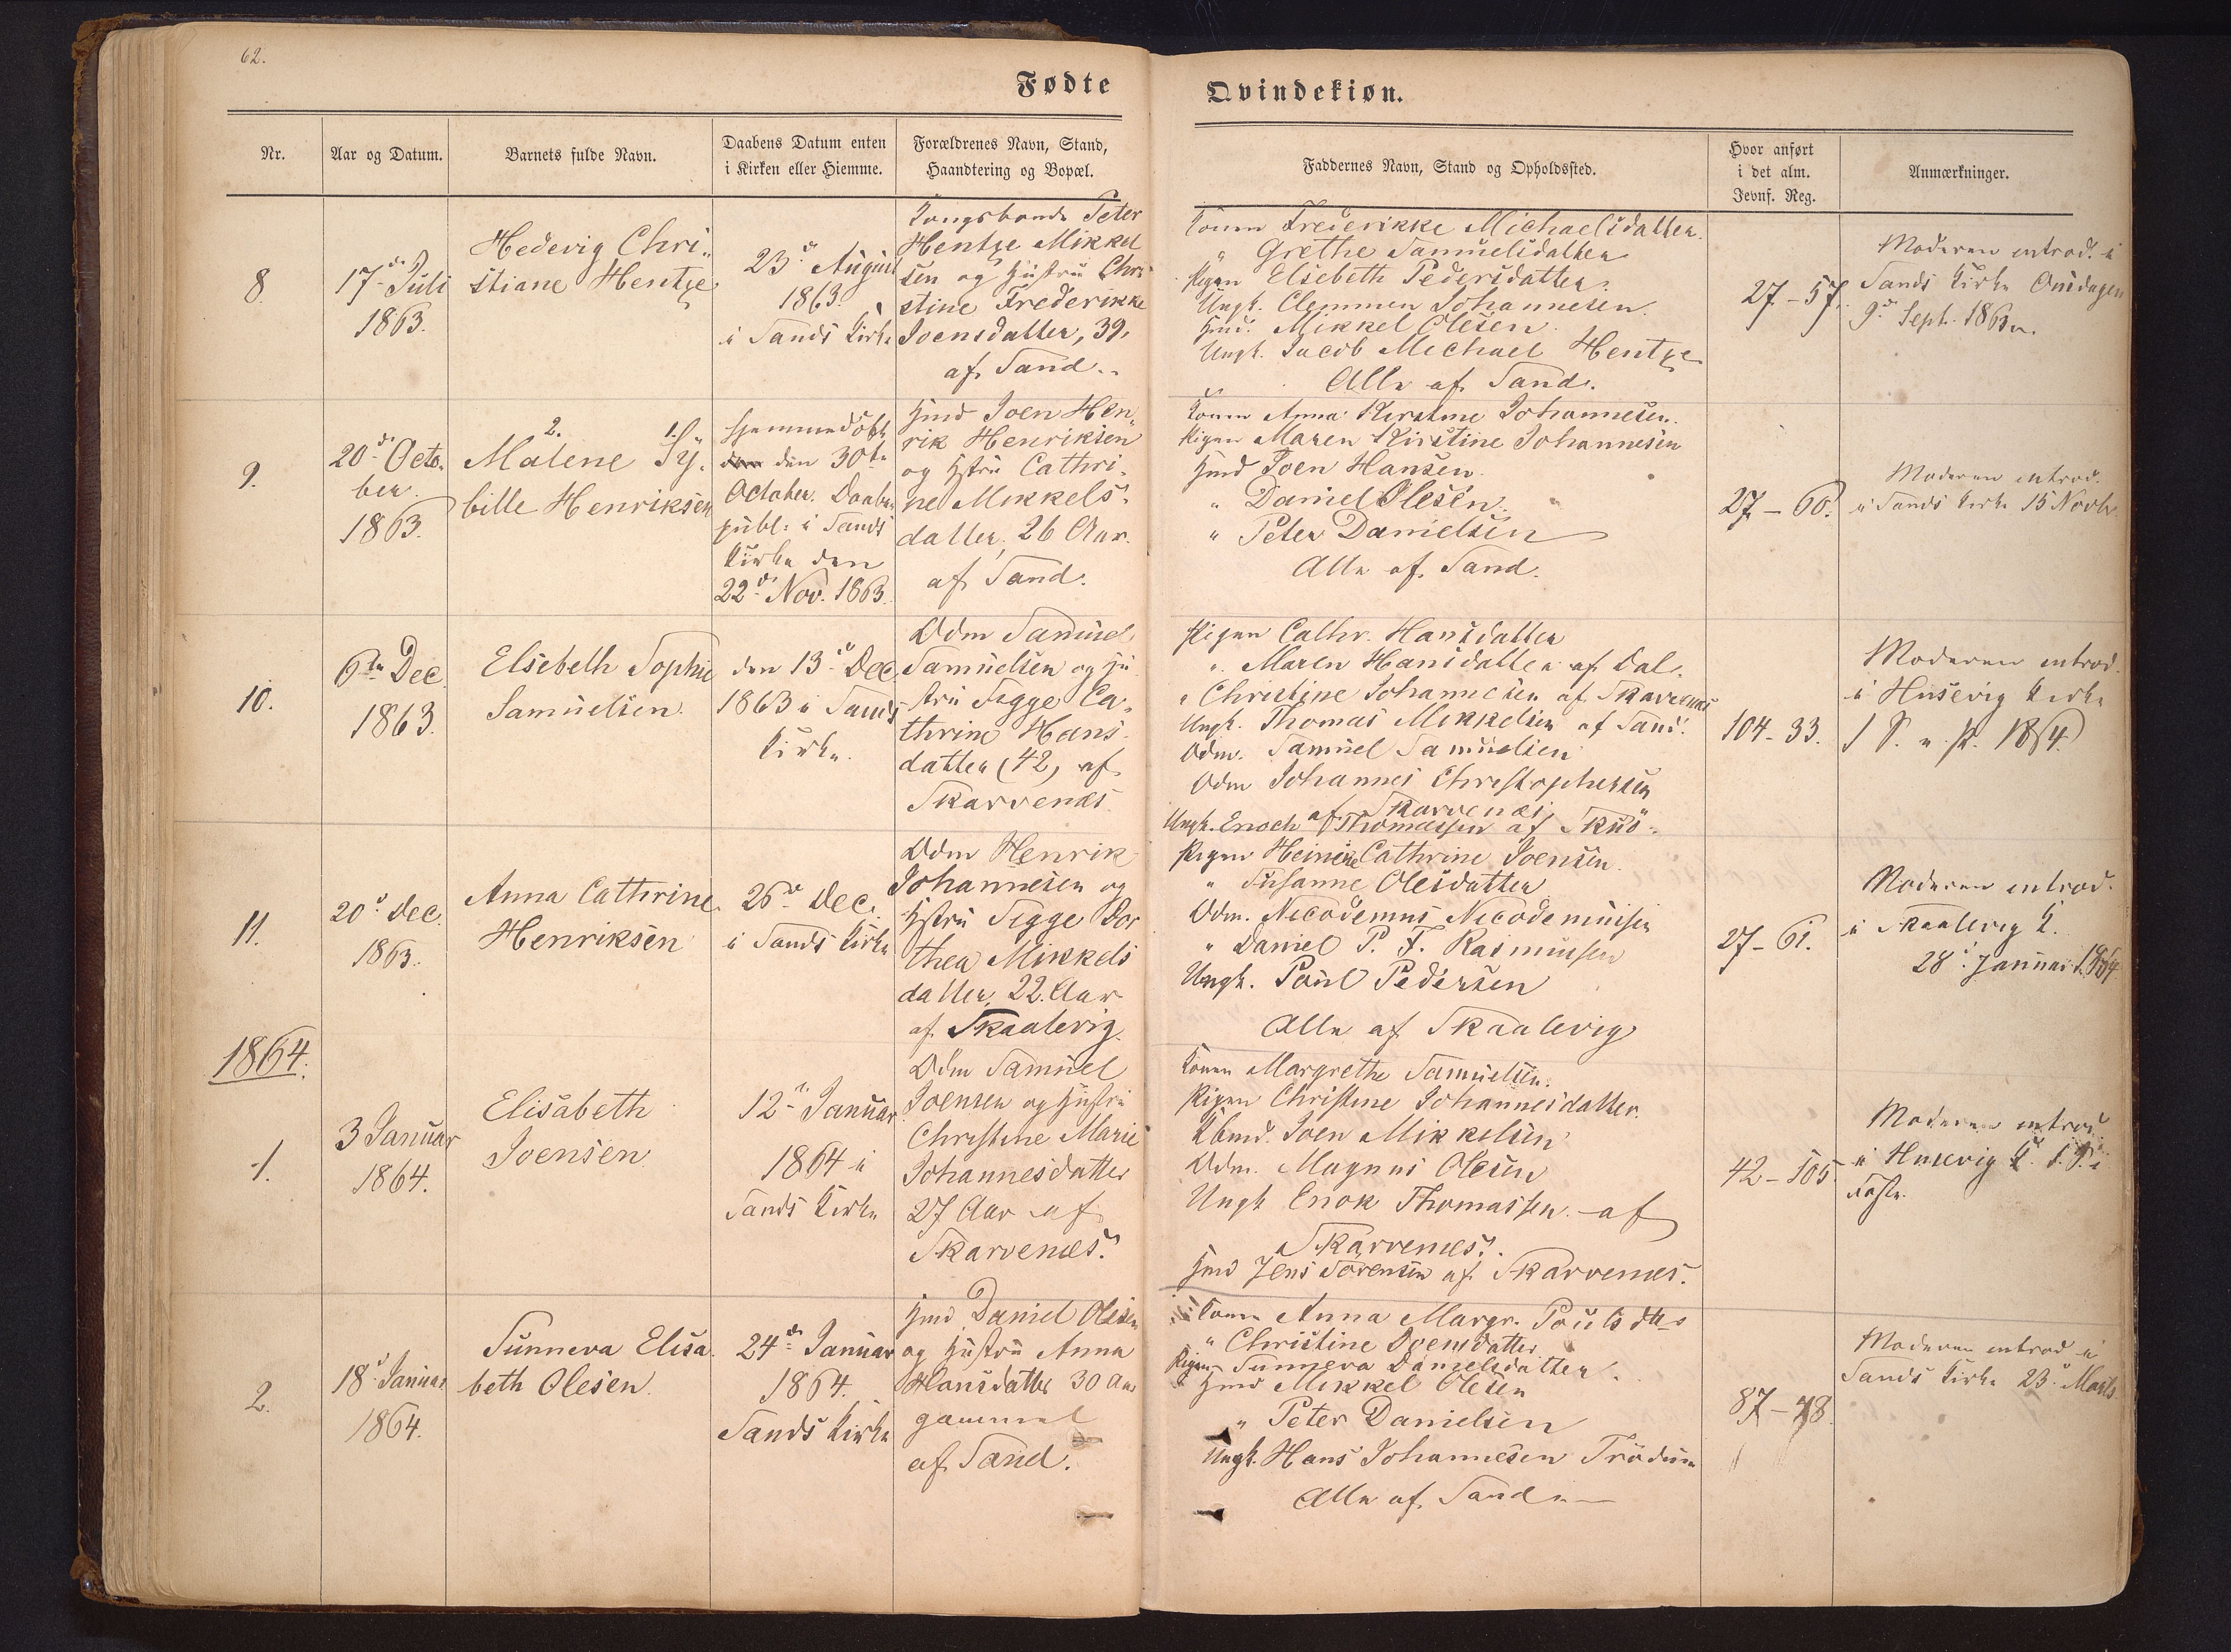 62.
Fødte
Qvindekiøn.
Nr.
Aar og Datum.
Barnets fulde Navn.
Daabens Datum enten
i Kirken eller Hiemme.
Forældrenes Navn, Stand,
Haandtering og Bopæl.
Faddernes Navn, Stand og Opholdssted.
Hvor anført
i det alm.
Jevnf. Reg.
Anmærkninger.
8.
17de Juli
1863.
Hedevig Chri-
stiane Hentze
23de August
1863.
i Sands Kirke
Kongsbonde Peter
Hentze Mikkel
sen og Hustru Chri
stine Frederikke
Joensdatter, 39,
af Sand.
Konen Frederikke Michaelsdatter.
" Grethe Samuelsdatter
Pigen Elsebeth Pedersdatter.
Ungk. Clemmen Johannesen.
Hmd. Mikkel Olesen.
Ungk. Jacob Michael Hentze
Alle af Sand.
27-57.
Moderen introd. i
Sands Kirke Onsdagen
9de Sept. 1863.
9.
20de Octo-
ber
1863.
2. 1.
Malene Sy-
bille Henriksen
Hjemmedøbt
den 30te
October. Daaben
publ. i Sands
Kirke den
22de Nov. 1863.
Hmd Joen Hen
rik Henriksen
og Hstru Cathri-
ne Mikkels-
datter, 26 Aar.
af Sand.
Konen Anna Kirstine Johannesen.
Pigen Maren Kirstine Johannesen
Hmd Joen Hansen.
" Daniel Olesen.
" Peter Danielsen
Alle af Sand.
27-60.
Moderen introd.
i Sands Kirke 15 Novbr.
10.
6te Dec
1863.
Elsebeth Sophie
Samuelsen.
den 13de Dec.
1863 i Sands
Kirke.
Odm Samuel
Samuelsen og Hu
stru Sigge Ca-
thrine Hans-
datter (42) af
Skarvenæs
Pigen Cathr. Hansdatter
" Maren Hansdatter af Dal.
" Christine Johannesen af Skarvenæs
Ungk. Thomas Mikkelsen af Sand.
Odm. Samuel Samuelsen
Odm Johannes Christophersen
af Skarvenæs
Ungk. Enoch Thomassen af Skuø.
104-33.
Moderen introd.
i Husevig Kirke
1864.
11.
20de Dec.
1863.
Anna Cathrine
Henriksen
26de Dec.
i Sands Kirke
Odm Henrik
Johannesen og
Hstru Sigge Dor
thea Mikkels
datter, 22 Aar
af Skaalevig.
Pigen Heinine Cathrine Joensen.
" Susanne Olesdatter
Odm. Nicodemus Nicodemusen
" Daniel P. F. Rasmussen
Ungk. Poul Pedersen
Alle af Skaalevig
27-61.
Moderen introd.
i Skaalevig K.
28de Januar 1864
1864.
1.
3 Januar
1864.
Elisabeth
Joensen
12te Januar
1864 i
Sands Kirke
Odm Samuel
Joensen og Hustru
Christine Marie
Johannesdatter
27 Aar af
Skarvenæs.
Konen Margrethe Samuelsen.
Pigen Christine Johannesdatter.
Kbmd. Joen Mikkelsen
Odm. Magnus Olesen
Ungk Enok Thomassen af
Skarvenæs.
Hmd Jens Sørensen af Skarvenæs.
42-105.
Moderen introd.
i Husevig K. 1. S. i
Faste.
2.
18de Januar
1864.
Sunneva Elisa-
beth Olesen.
24de Januar
1864.
Sands Kirke
Hmd Daniel Olesen
og Hustru Anna
Hansdatter 30 Aar
gammel
af Sand.
Konen Anna Margr. Poulsdtr
" Christine Joensdatter
Pigen Sunneva Danielsdatter.
Hmd Mikkel Olesen
" Peter Danielsen
Ungk. Hans Johannesen Trødum
Alle af Sand
87-78.
Moderen introd i
Sands Kirke 23de Marts